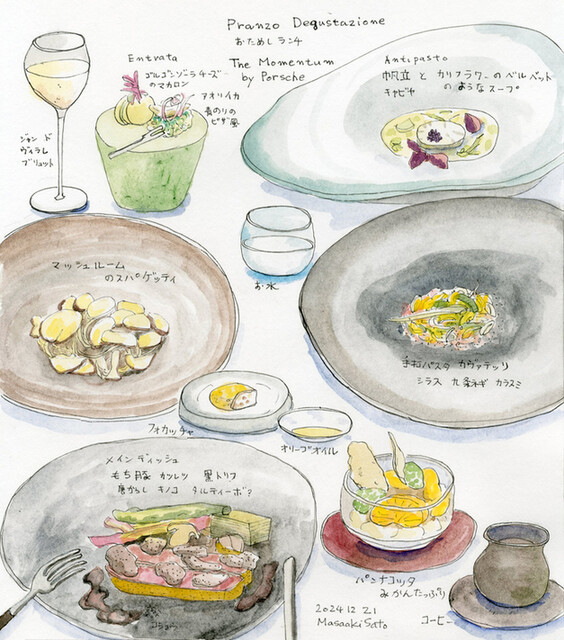 Pranzo Degustazione
おためしランチ
The Momentum
by Porsche
Entrata
ゴルゴンゾーラチーズ
のマカロン
アオリイカ
青のりの
ピザ風
ジャンド
ヴィラレ
ブリュット
Antipasto
帆立とカリフラワーのベルベット
のようなスープ
キャビヤ
マッシュルーム
のスパゲッティ
お水
手打パスタ カヴァテッリ
シラス 九条ネギ カラスミ
フォカッチャ
オリーブオイル
メインディッシュ
もち豚 カツレツ 黒トリフ
唐がらし キノコ タルティーボ?
パンナコッタ
みかんたっぷり
コーヒー
2024 12 21
Masaaki Sato